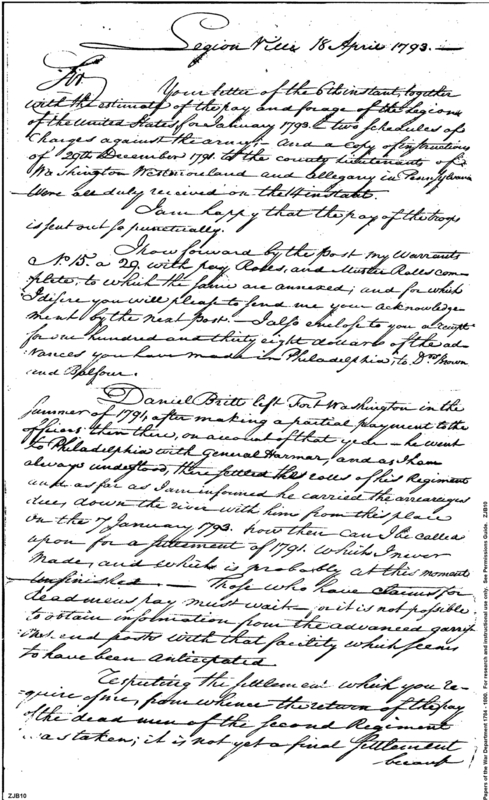 Legion Ville 18 April 1793.—
Sir
Your letter of the 6th instant, together
with the estimate of the pay and forage of the Legion
of the United States for January 1793 - two schedules of
Charges against the army, - and a Copy of instructions
of 29th December 1791 to the county lieutenants of
Washington Westmoreland and allegany in Pennsylvania
Were all duly received on the 14 instant.
I am happy that the pay of the troops
is sent out so punctually.
I now forward by the post my Warrants
No. 15. a 29. with pay Roles, and Muster Rolls com-
plete; to which the same are annexed; and for which
I desire you will please to send me your acknowledge-
ment by the next post. - I also enclose to you a receipt
for one hundred and thirty eight dollars of the ad-
vances you have made in Philadelphia, to Drs Brown
and Balfour.
Daniel Britt left Fort Washington in the
Summer of 1791, after making a partial payment to the
officers then there, on account of that year - he went
to Philadelphia with General Harmar, and as I have
always understood, there settled the of his Regiment
and as far as I am informed he carried the arrearages
due, down the river with him from this place
on the 7 January 1793. how then can I be called
upon for a settlement of 1791. which I never
made, and which is probably at this moment
unfinished. - Those who have claims for
dead mens pay must wait - or it is not possible
to obtain information from the advanced garris-
ons and posts with that facility which seems
to have been anticipated
Respecting the settlement which you re-
quire of me, from whence the return of the pay
of the dead men of the second Regiment
was taken; it is not yet a final settlement
because
ZJB10
Papers of the War Department 1784 - 1800. For research and instructional use only. See Permissions Guide. ZJB10